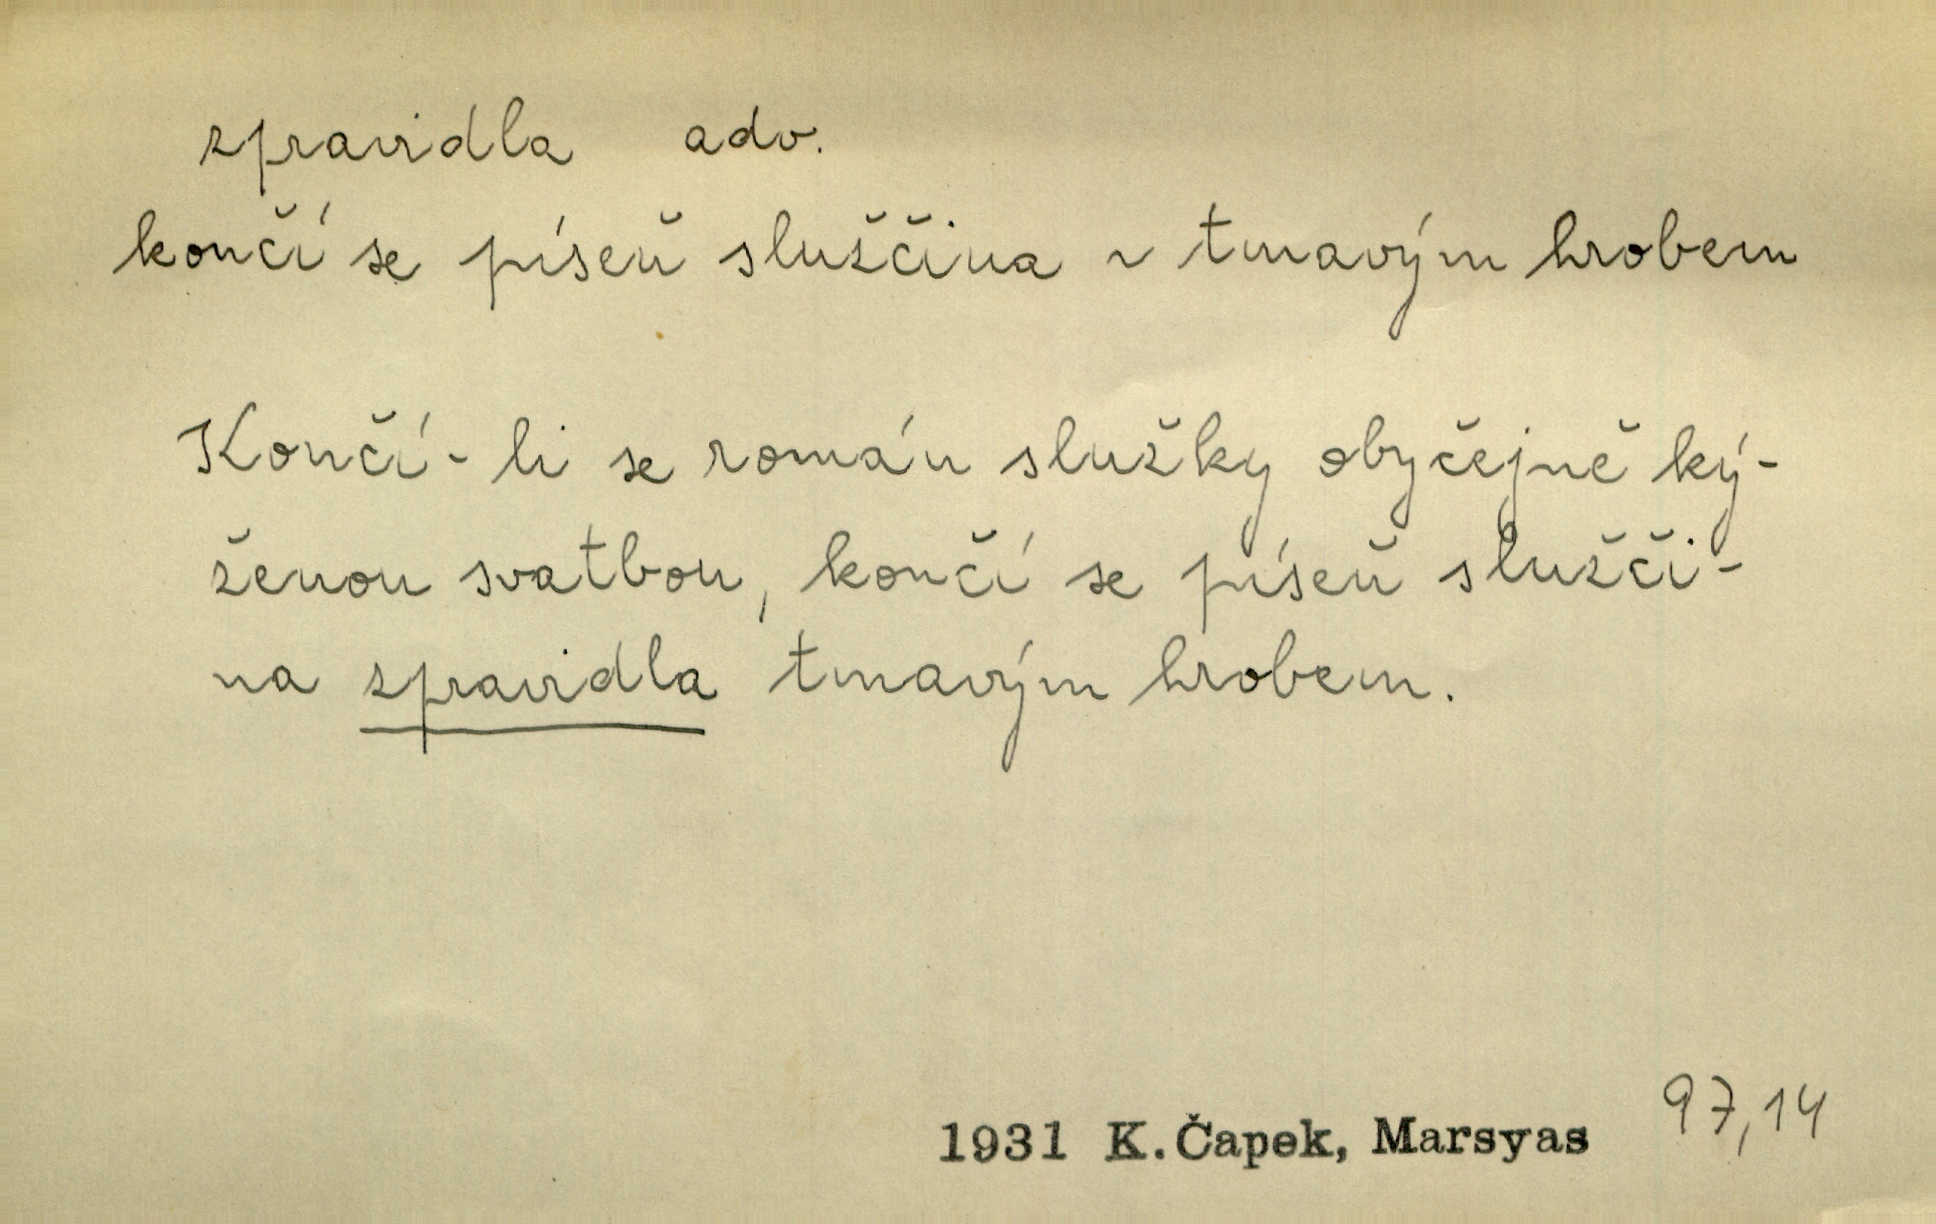 zpravidla adv.
končí se píseň služčina ~ tmavým hrobem
Končí-li se román služky obyčejně ký-
ženou svatbou, končí se píseň služči-
na zpravidla tmavým hrobem.
97,14
1931 K. Čapek, Marsyas